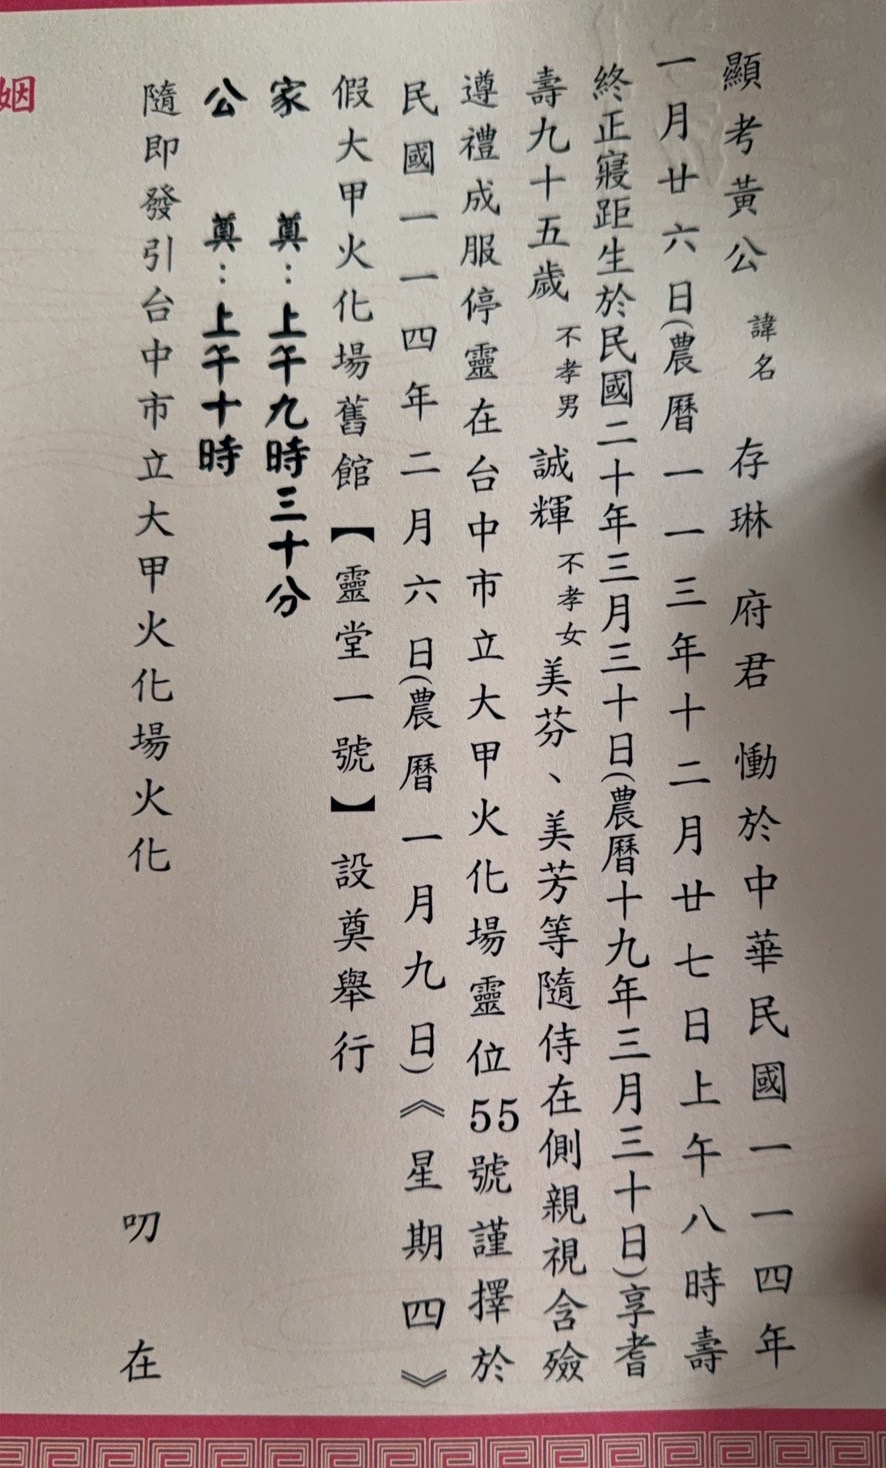 顯考黃公 諱名 存琳 府君 慟於中華民國一一四年
一月廿六日(農曆一一三年十二月廿七日上午八時壽
終正寢距生於民國二十年三月三十日(農曆十九年三月三十日)享耆
壽九十五歲 不孝男 誠輝 不孝女 美芬、美芳等隨侍在側親視含殮
遵禮成服停靈在台中市立大甲火化場靈位55號謹擇於
民國一一四年二月六日(農曆一月九日)《星期四》
假大甲火化場舊館【靈堂一號】設奠舉行
家 奠:上午九時三十分
公 奠:上午十時
隨即發引台中市立大甲火化場火化
叨 在
姻